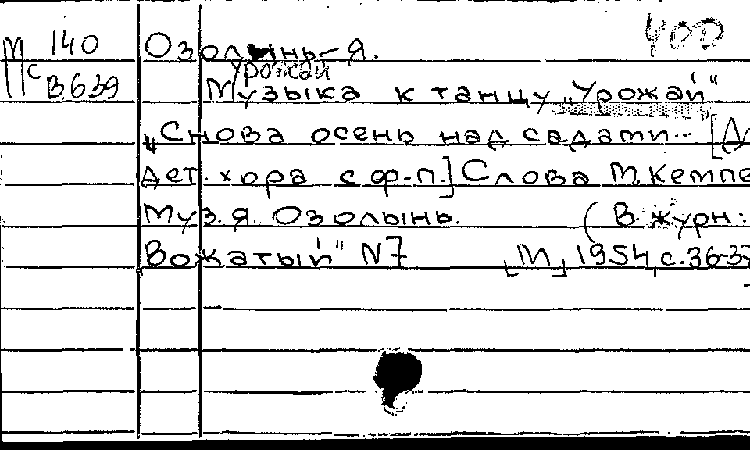 М 140 Озолынь Я. 400
Урожай
Пс В639 Музыка к танцу „Урожай"
„Снова осень над садами... [Д
дет. хора с ф-п.] Слова М. Кемпе
Муз. Я. Озолынь. (В журн:
Вожатый" N7 [М], 1954, с. 36-37